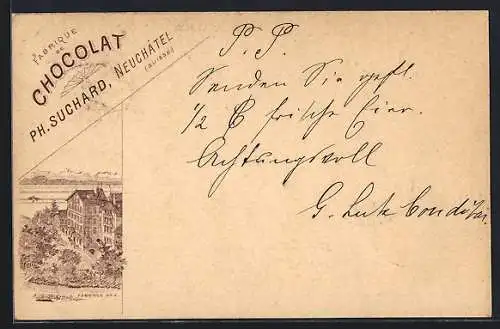 FABRIQUE
DE
CHOCOLAT
PH. SUCHARD, NEUCHÂTEL
(SUISSE)
P. P.
Senden Sie gefl.
1/2 ℔ frische Eier.
Achtungsvoll
G.
FABRIQUE